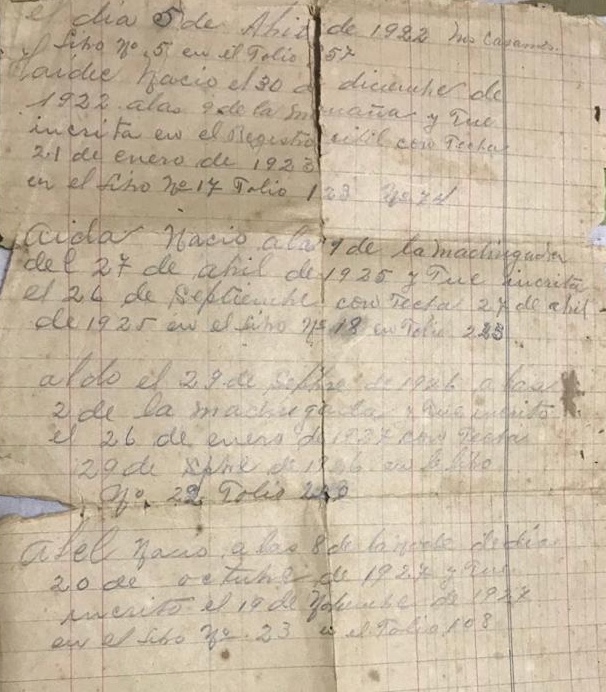 el dia 5 de Abil de 1922 nos casamos.
Libro Nº 5 en el Folio 57
Haidee Nacio el 30 de diciembre de
1922 a las 9 de la mañana y Fue
incrita en el Registro cibil con Fecha
21 de enero de 1923
en el Libro Nº 17 Folio 123 Nº 74
Aida Nacio a las 1 de la madrugada
del 27 de abil de 1925 y Fue incrita
el 26 de Septiembe con Fecha 27 de abil
de 1925 en el Libro Nº 18 en Folio 223
aldo el 29 de Sepbre de 1926 a las
2 de la madrugada y Fue incrito
el 26 de enero de 1927 con Fecha
29 de Sepbre de 1926 en el Libro
Nº. 22 Folio
Abel Nacio a las 8 de la noche del dia
20 de octube de 1927 y Fue
incrito el 19 de Nobiembe de 1927
en el Libro Nº 23 en el Folio 108